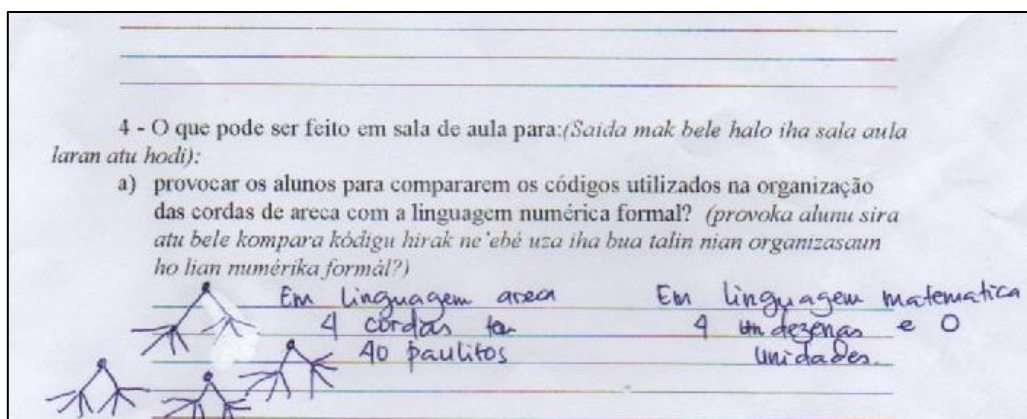 4 - O que pode ser feito em sala de aula para:(Saida mak bele halo iha sala aula
laran atu hodi):
a) provocar os alunos para compararem os códigos utilizados na organização
das cordas de areca com a linguagem numérica formal? (provoka alunu sira
atu bele kompara kódigu hirak ne'ebé uza iha bua talin nian organizasaun
ho lian numérika formál?)
Em linguagem areca
4 cordas tem
40 paulitos
Em linguagem matematica
4 dezenas e 0
unidades.